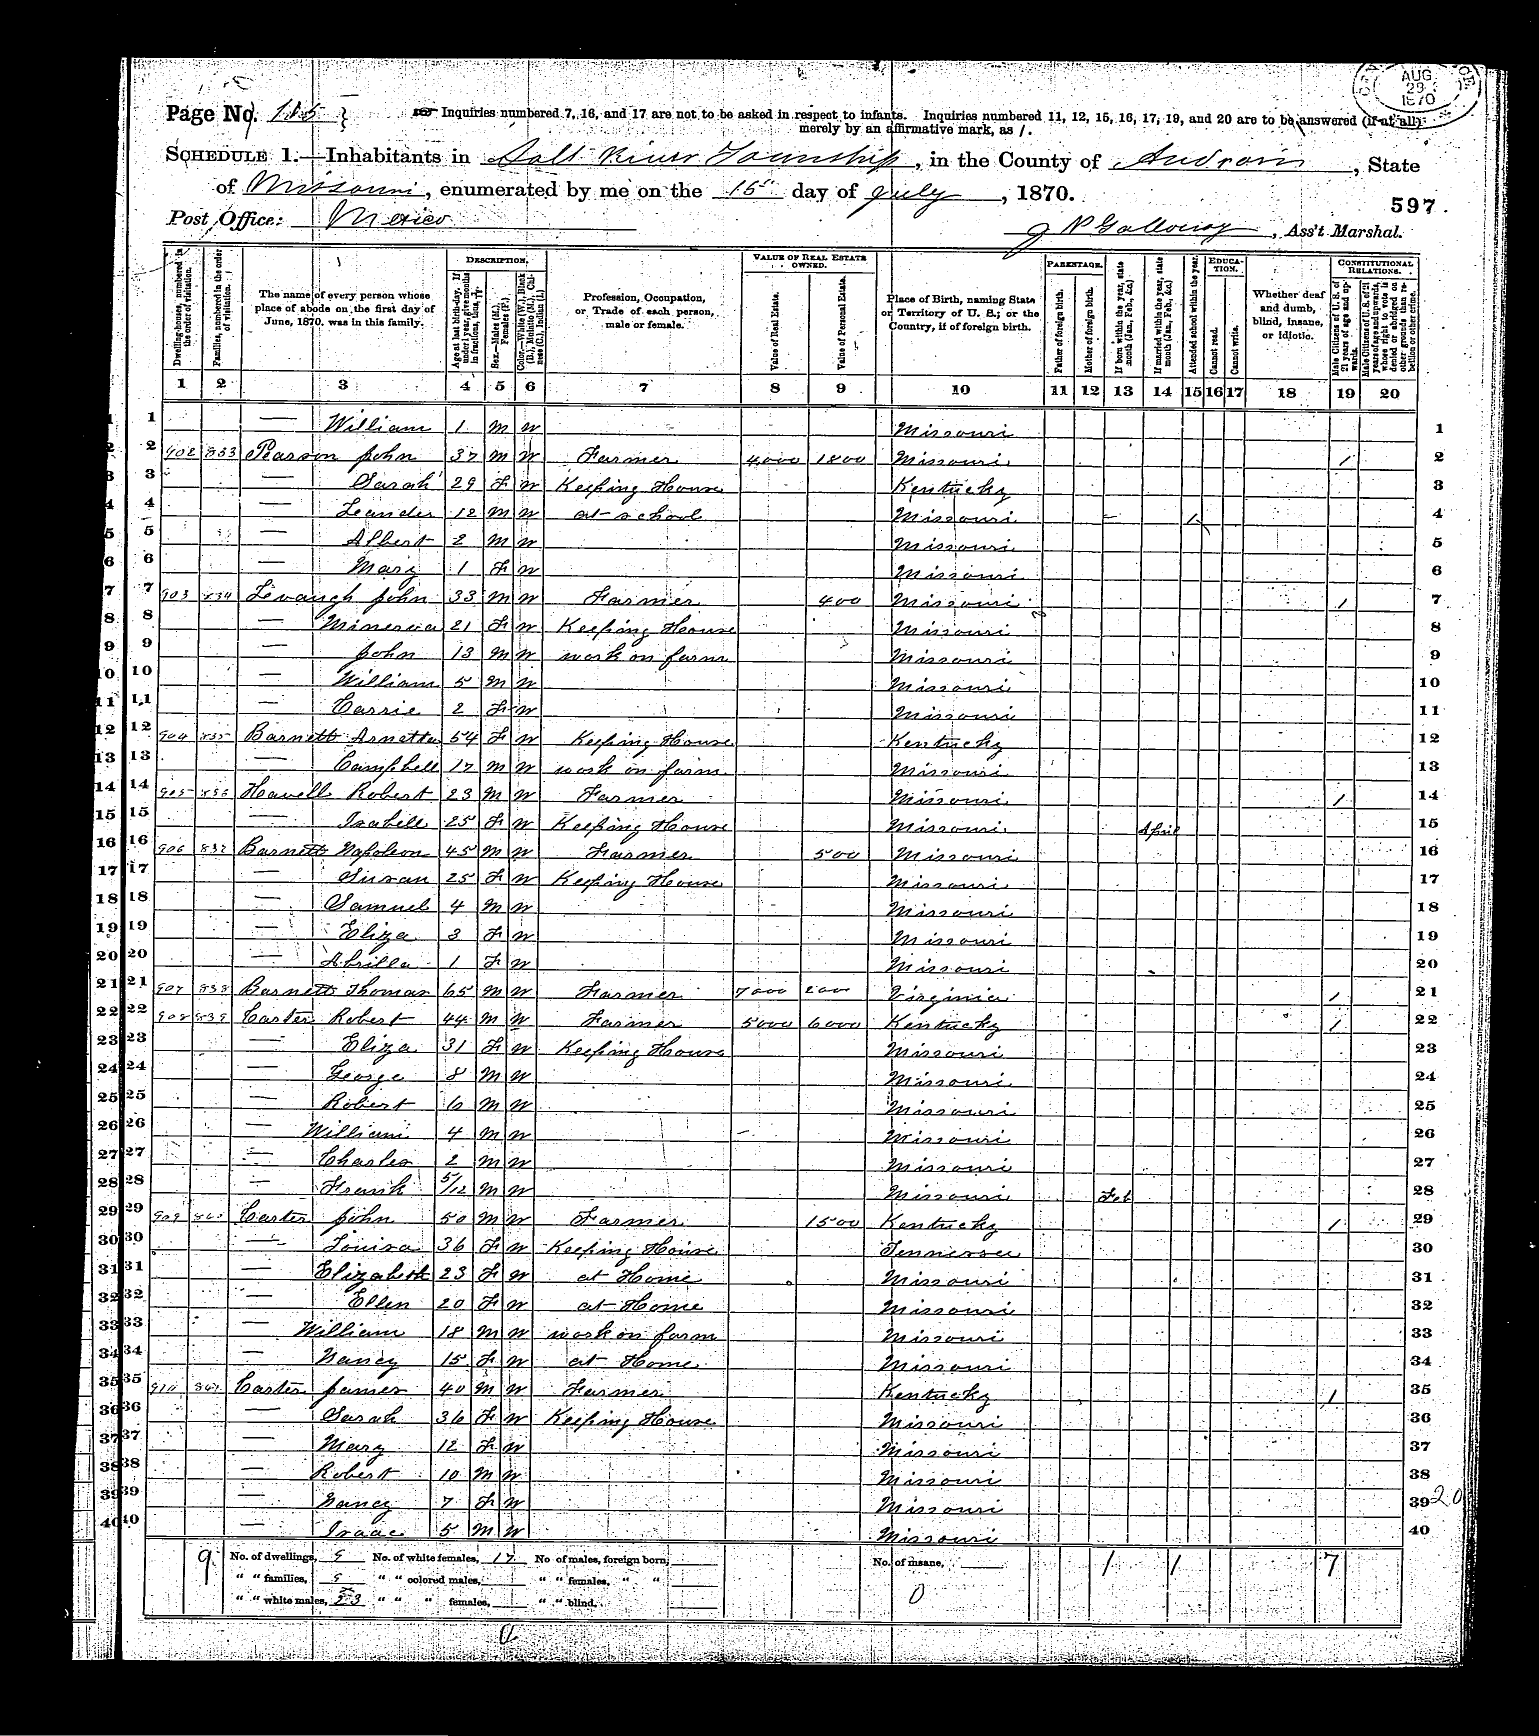 AUG 29 1870
Page No. 115 Inquiries numbered 7, 16, and 17 are not to be asked in respect to infants. Inquiries numbered 11, 12, 15, 16, 17, 19, and 20 are to be answered (if at all)
merely by an affirmative mark, as /.
SCHEDULE 1.—Inhabitants in Salt River Township, in the County of Audrain, State
of Missouri, enumerated by me on the 15 day of July, 1870.
597.
Post Office: Mexico
J N Galloway, Ass't Marshal.
Dwelling-houses, numbered in the order of visitation.
Families, numbered in the order of visitation.
The name of every person whose place of abode on the first day of June, 1870, was in this family.
DESCRIPTION.
Age at last birth-day. If under 1 year, give months in fractions, thus, 3/12
Sex.—Males (M.), Females (F.)
Color.—White (W.), Black (B.), Mulatto (M.), Chinese (C.), Indian (I.)
Profession, Occupation, or Trade of each person, male or female.
VALUE OF REAL ESTATE OWNED.
Value of Real Estate.
Value of Personal Estate.
Place of Birth, naming State or Territory of U. S.; or the Country, if of foreign birth.
PARENTAGE.
Father of foreign birth.
Mother of foreign birth.
If born within the year, state month (Jan., Feb., &c.)
If married within the year, state month (Jan., Feb., &c.)
Attended school within the year.
EDUCATION.
Cannot read.
Cannot write.
Whether deaf and dumb, blind, insane, or idiotic.
CONSTITUTIONAL RELATIONS.
Male Citizens of U. S. of 21 years of age and upwards.
Male Citizens of U. S. of 21 years of age and upwards, whose right to vote is denied or abridged on other grounds than rebellion or other crime.
1 2 3 4 5 6 7 8 9 10 11 12 13 14 15 16 17 18 19 20
1 1 — William 1 M W Missouri 1
2 2 902 833 Pearson John 37 M W Farmer 4000 1800 Missouri 1 2
3 3 — Sarah 29 F W Keeping House Kentucky 3
4 4 — Leander 12 M W at school Missouri 1 4
5 5 — Albert 2 M W Missouri 5
6 6 — Mary 1 F W Missouri 6
7 7 903 834 Levaugh John 33 M W Farmer 400 Missouri 1 7
8 8 — Minerva 21 F W Keeping House Missouri 8
9 9 — John 13 M W work on farm Missouri 9
10 10 — William 5 M W Missouri 10
11 11 — Carrie 2 F W Missouri 11
12 12 904 835 Barnett Arnetta 54 F W Keeping House Kentucky 12
13 13 — Campbell 17 M W work on farm Missouri 13
14 14 905 836 Howell Robert 23 M W Farmer Missouri 1 14
15 15 — Isabell 25 F W Keeping House Missouri April 15
16 16 906 837 Barnett Napoleon 45 M W Farmer 500 Missouri 16
17 17 — Susan 25 F W Keeping House Missouri 17
18 18 — Samuel 4 M W Missouri 18
19 19 — Eliza 3 F W Missouri 19
20 20 — Abrilla 1 F W Missouri 20
21 21 907 838 Barnett Thomas 65 M W Farmer 7000 Virginia 1 21
22 22 908 839 Carter Robert 44 M W Farmer 5000 6000 Kentucky 1 22
23 23 — Eliza 31 F W Keeping House Missouri 23
24 24 — George 8 M W Missouri 24
25 25 — Robert 6 M W Missouri 25
26 26 — William 4 M W Missouri 26
27 27 — Charles 2 M W Missouri 27
28 28 — Frank 5/12 M W Missouri Feb 28
29 29 909 840 Carter John 50 M W Farmer 1500 Kentucky 1 29
30 30 — Louisa 36 F W Keeping House Tennessee 30
31 31 — Elizabeth 23 F W at Home Missouri 31
32 32 — Ellen 20 F W at Home Missouri 32
33 33 — William 18 M W work on farm Missouri 33
34 34 — Nancy 15 F W at Home Missouri 34
35 35 910 841 Carter James 40 M W Farmer Kentucky 1 35
36 36 — Sarah 36 F W Keeping House Missouri 36
37 37 — Mary 12 F W Missouri 37
38 38 — Robert 10 M W Missouri 38
39 39 — Nancy 7 F W Missouri 39 20
40 40 — Isaac 5 M W Missouri 40
9 No. of dwellings, 9 No. of white females, 17 No of males, foreign born, No. of insane, 1 1 7
" " families, 9 " " colored males, " " females, " " 0
" " white males, 23 " " " females, " " blind,